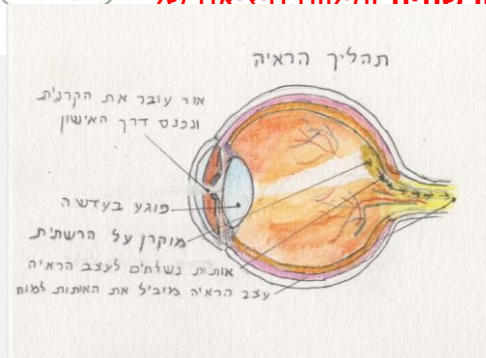 תהליך הראיה
אור עובר את הקרנית
ונכנס דרך האישון
פוגע בעדשה
מוקרן על הרשתית
אותות נשלחים לעצב הראיה
עצב הראיה מוביל את האותות למוח